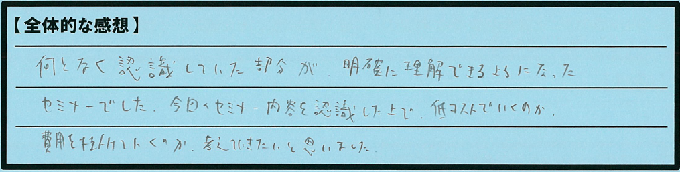 【全体的な感想】
何となく認識していた部分が、明確に理解できるようになった
セミナーでした。今回のセミナー内容を認識した上で、低コストでいくのか、
費用をかけていくのか、考えていきたいと思いました。